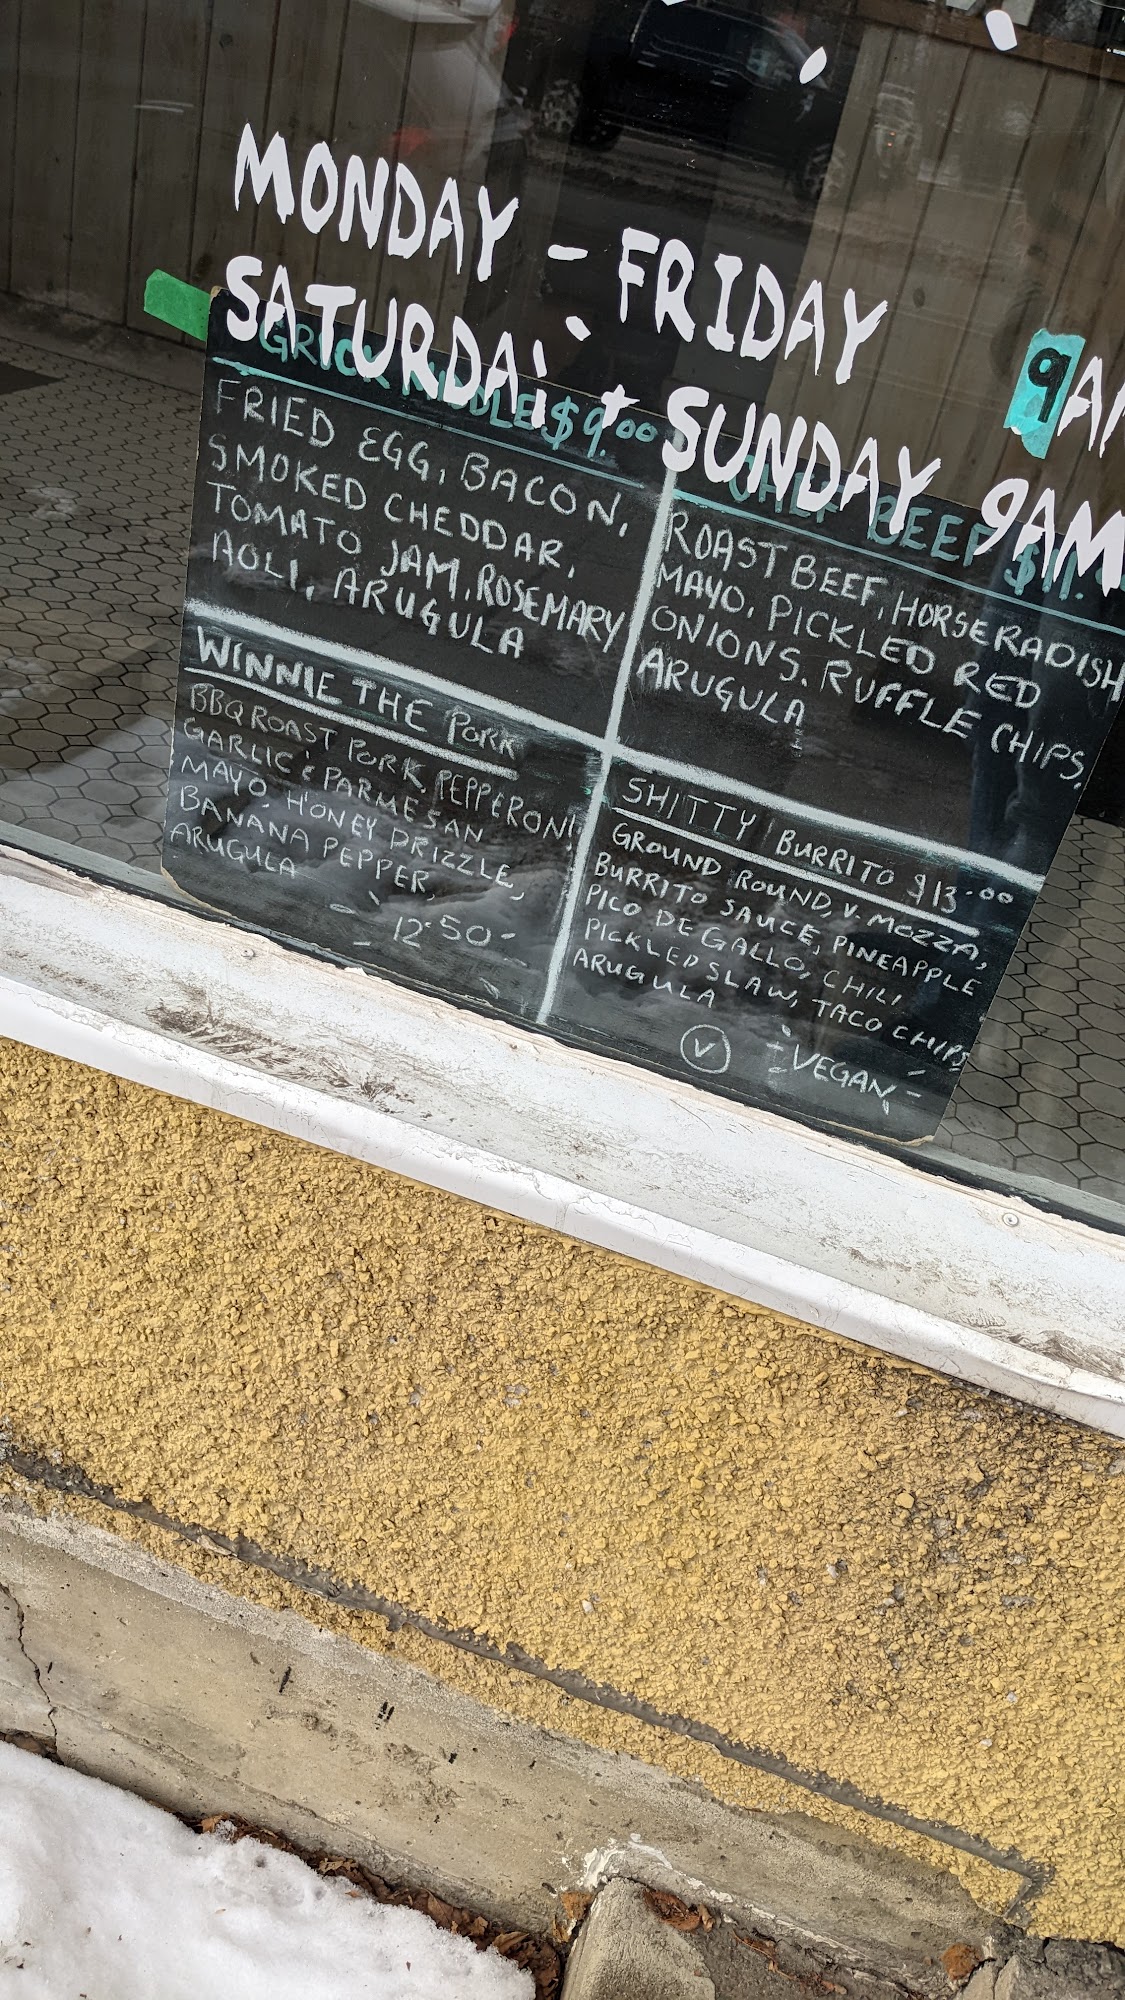 MONDAY - FRIDAY 9AM
SATURDAY + SUNDAY 9AM
$9.00
FRIED EGG, BACON,
SMOKED CHEDDAR,
TOMATO JAM, ROSEMARY
AOLI, ARUGULA
CHEF BEEF $11.
ROAST BEEF, HORSERADISH
MAYO, PICKLED RED
ONIONS, RUFFLE CHIPS,
ARUGULA
WINNIE THE PORK
BBQ ROAST PORK, PEPPERONI
GARLIC & PARMESAN
MAYO, HONEY DRIZZLE,
BANANA PEPPER,
ARUGULA
- 12.50 -
SHITTY BURRITO $13.00
GROUND ROUND, V. MOZZA,
BURRITO SAUCE, PINEAPPLE
PICO DE GALLO, CHILI
PICKLED SLAW, TACO CHIPS
ARUGULA
V - VEGAN -